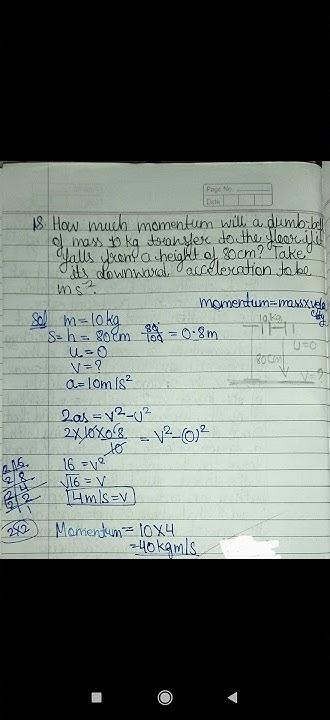 Page No.
Date
18 How much momentum will a dumb-bell
of mass 10 kg transfer to the floor if it
falls from a height of 80cm? Take
its downward acceleration to be
ms⁻².
momentum = mass × velo
city
Sol m = 10kg
S = h = 80cm 80/100 = 0.8m
u = 0
v = ?
a = 10m/s²
10kg
u=0
80cm
v=?
2as = v² - u²
2×10×08/10 = v² - (0)²
16 = v²
√16 = v
4m/s = v
2 16
2 8
2 4
2 2
1
2×2
Momentum = 10×4
= 40kgm/s